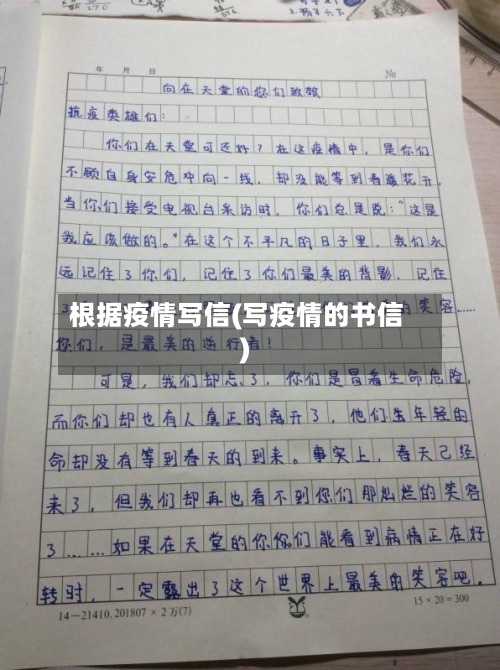 年 月 日 No
向在天堂的您们致敬
抗疫英雄们：
你们在天堂可还好？在这疫情中，是你们
不顾自身安危冲向一线，却没能等到春暖花开，
当你们接受电视台采访时，你们总是说：“这是
我应该做的。”在这个不平凡的日子里，我们永
远记住了你们，记住了你们最美的背影，记住
的笑容……
根据疫情写信(写疫情的书信
)
您们，是最美的逆行者！
可是，我们却忘了，你们是冒着生命危险，
而你们却也有人真正的离开了，他们生年轻的
命却没有等到春天的到来。事实上，春天已经
来了，但我们却再也看不到你们那灿烂的笑容
了……如果在天堂的你你们能看到病情正在好
转时，一定露出了这个世界上最美的笑容吧。
14—21410.201807×2万(7)
15×20=300